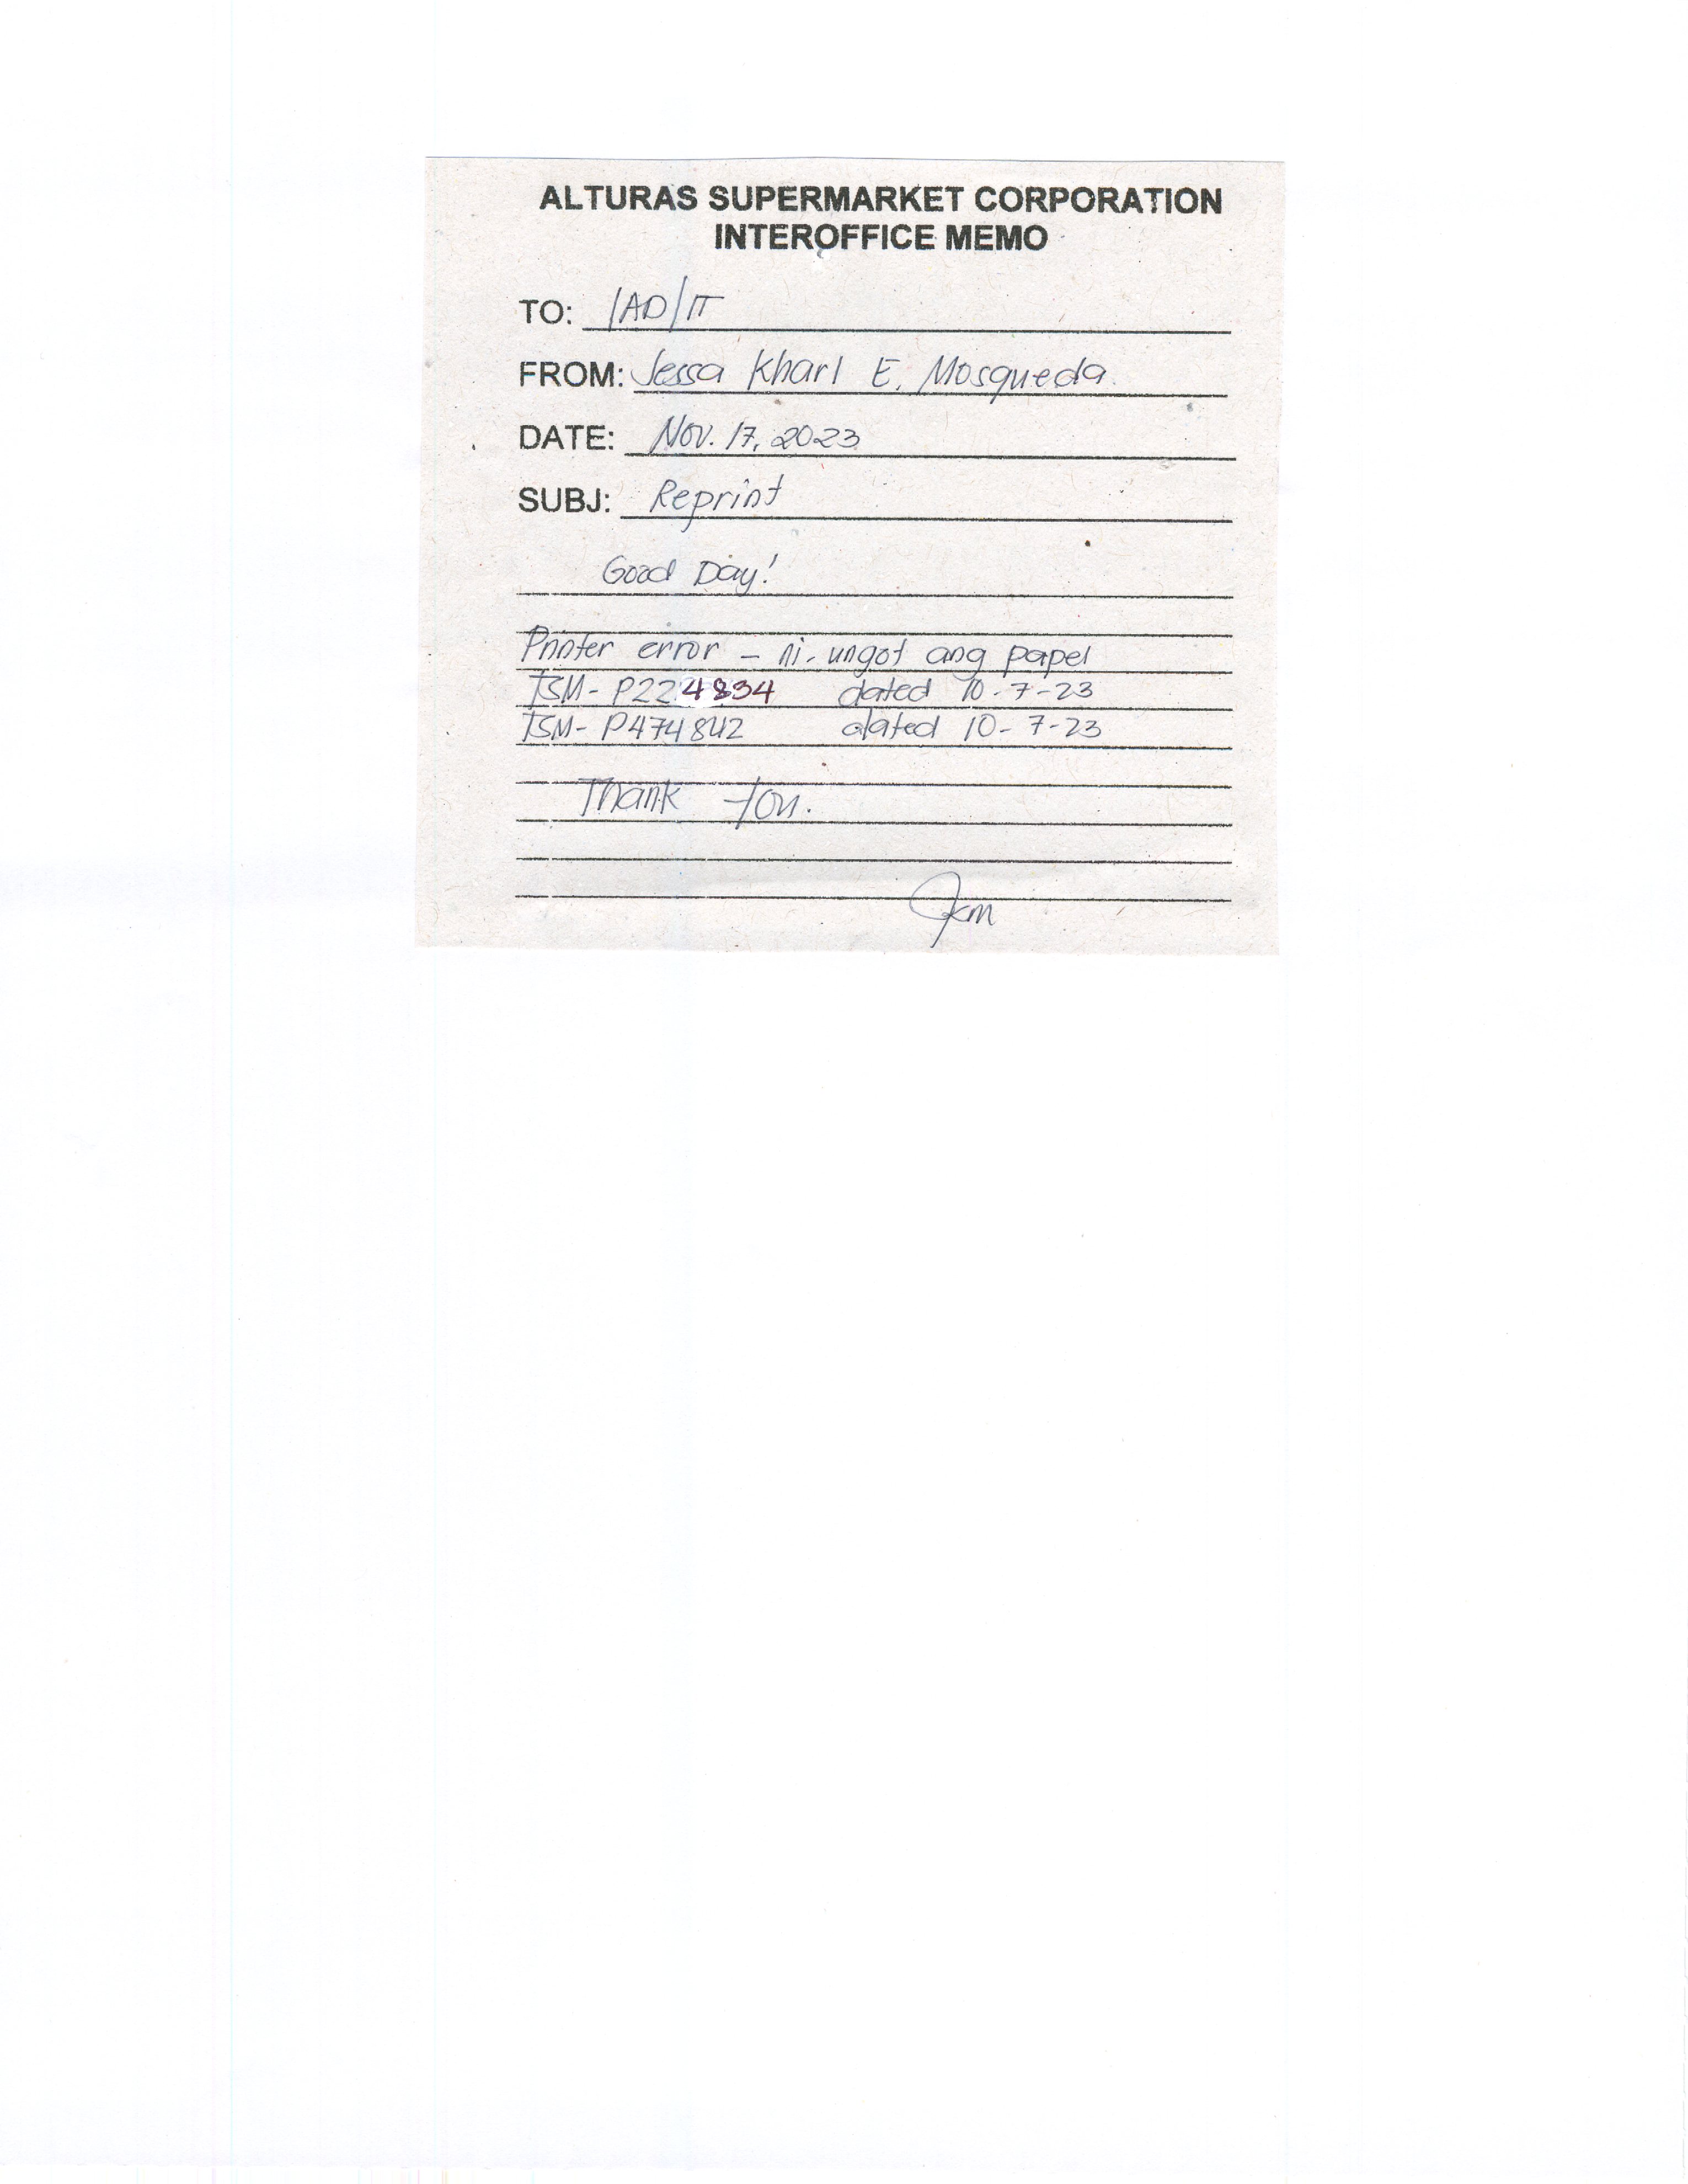 ALTURAS SUPERMARKET CORPORATION
INTEROFFICE MEMO
TO: IAD/IT
FROM: Jessa Kharl E. Mosqueda
DATE: Nov. 17, 2023
SUBJ: Reprint
Good Day!
Printer error - ni-ungot ang papel
ISM- P224834 dated 10-7-23
ISM- P474842 dated 10-7-23
Thank You.
Jkm